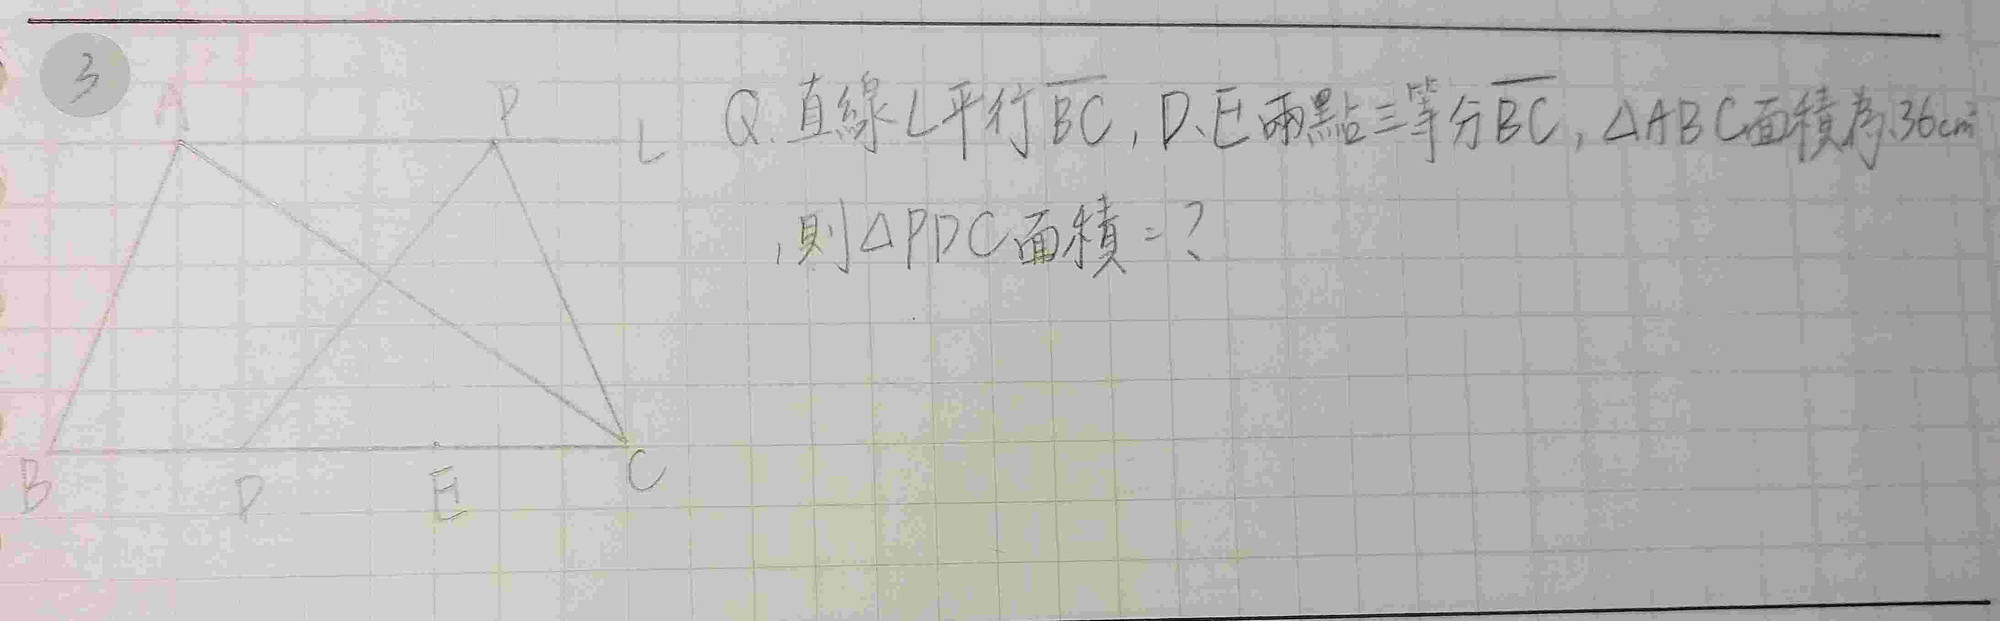 3
A
P
L
Q.直線L平行BC,D、E兩點三等分BC,△ABC面積為36cm²
,則△PDC面積=?
B
D
E
C